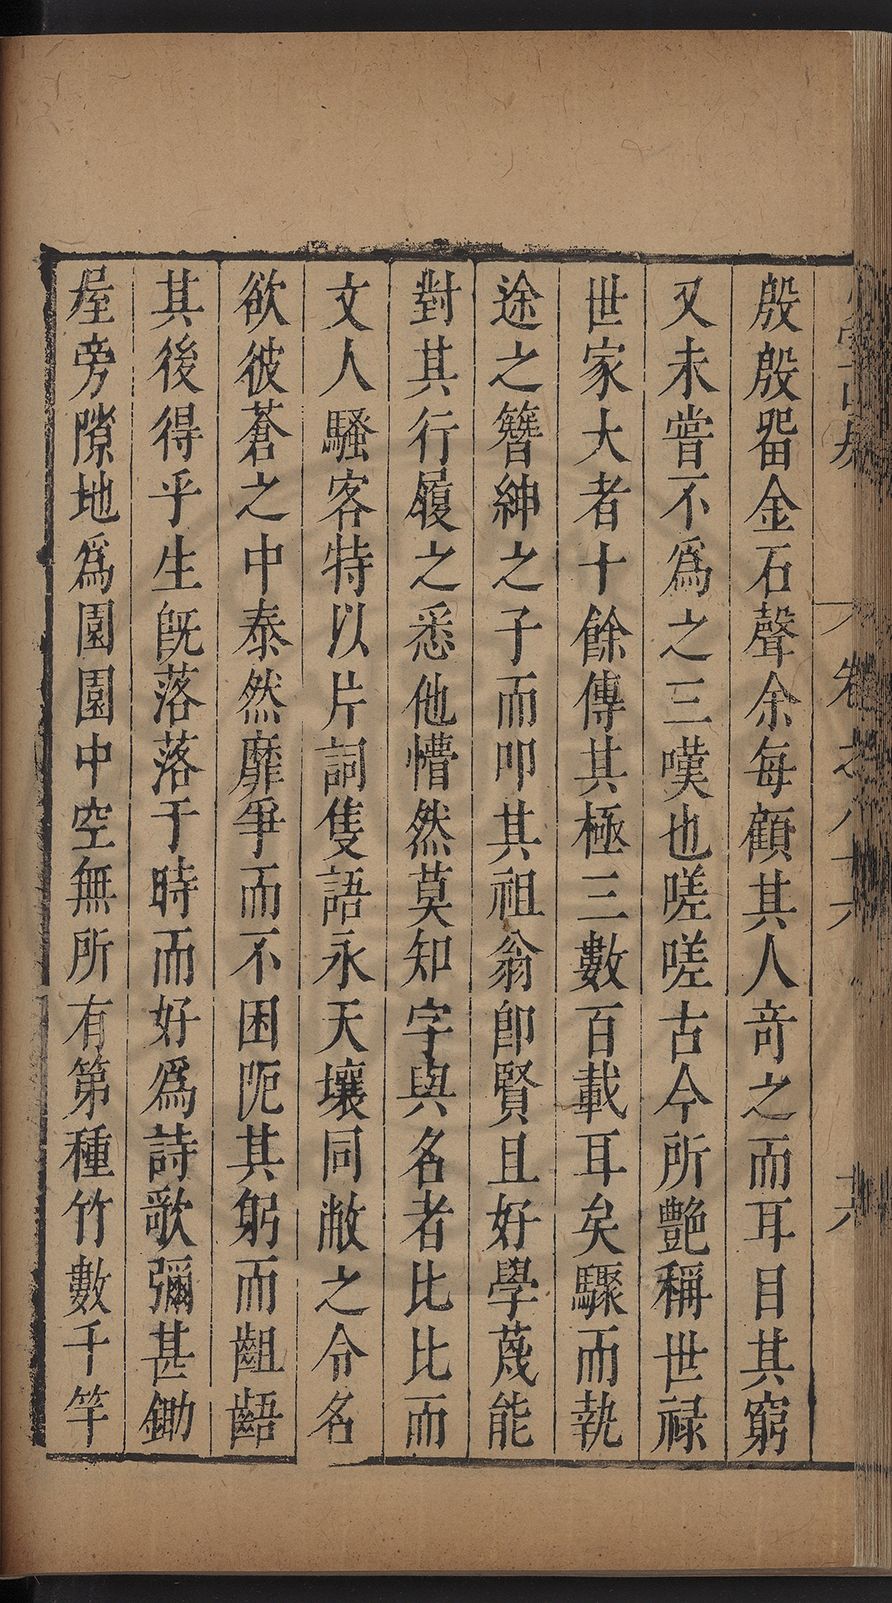 卷之八十六
十六
殷殷畱金石聲余每顧其人奇之而耳目其窮
又未嘗不爲之三嘆也嗟嗟古今所艷稱世禄
世家大者十餘傳其極三數百載耳矣驟而執
途之簪紳之子而叩其祖翁卽賢且好學蔑能
對其行履之悉他懵然莫知字與名者比比而
文人騷客特以片詞隻語永天壤同敝之令名
欲彼蒼之中泰然靡爭而不困阨其躬而齟齬
其後得乎生旣落落于時而好爲詩歌彌甚鋤
屋旁隙地爲園園中空無所有第種竹數千竿